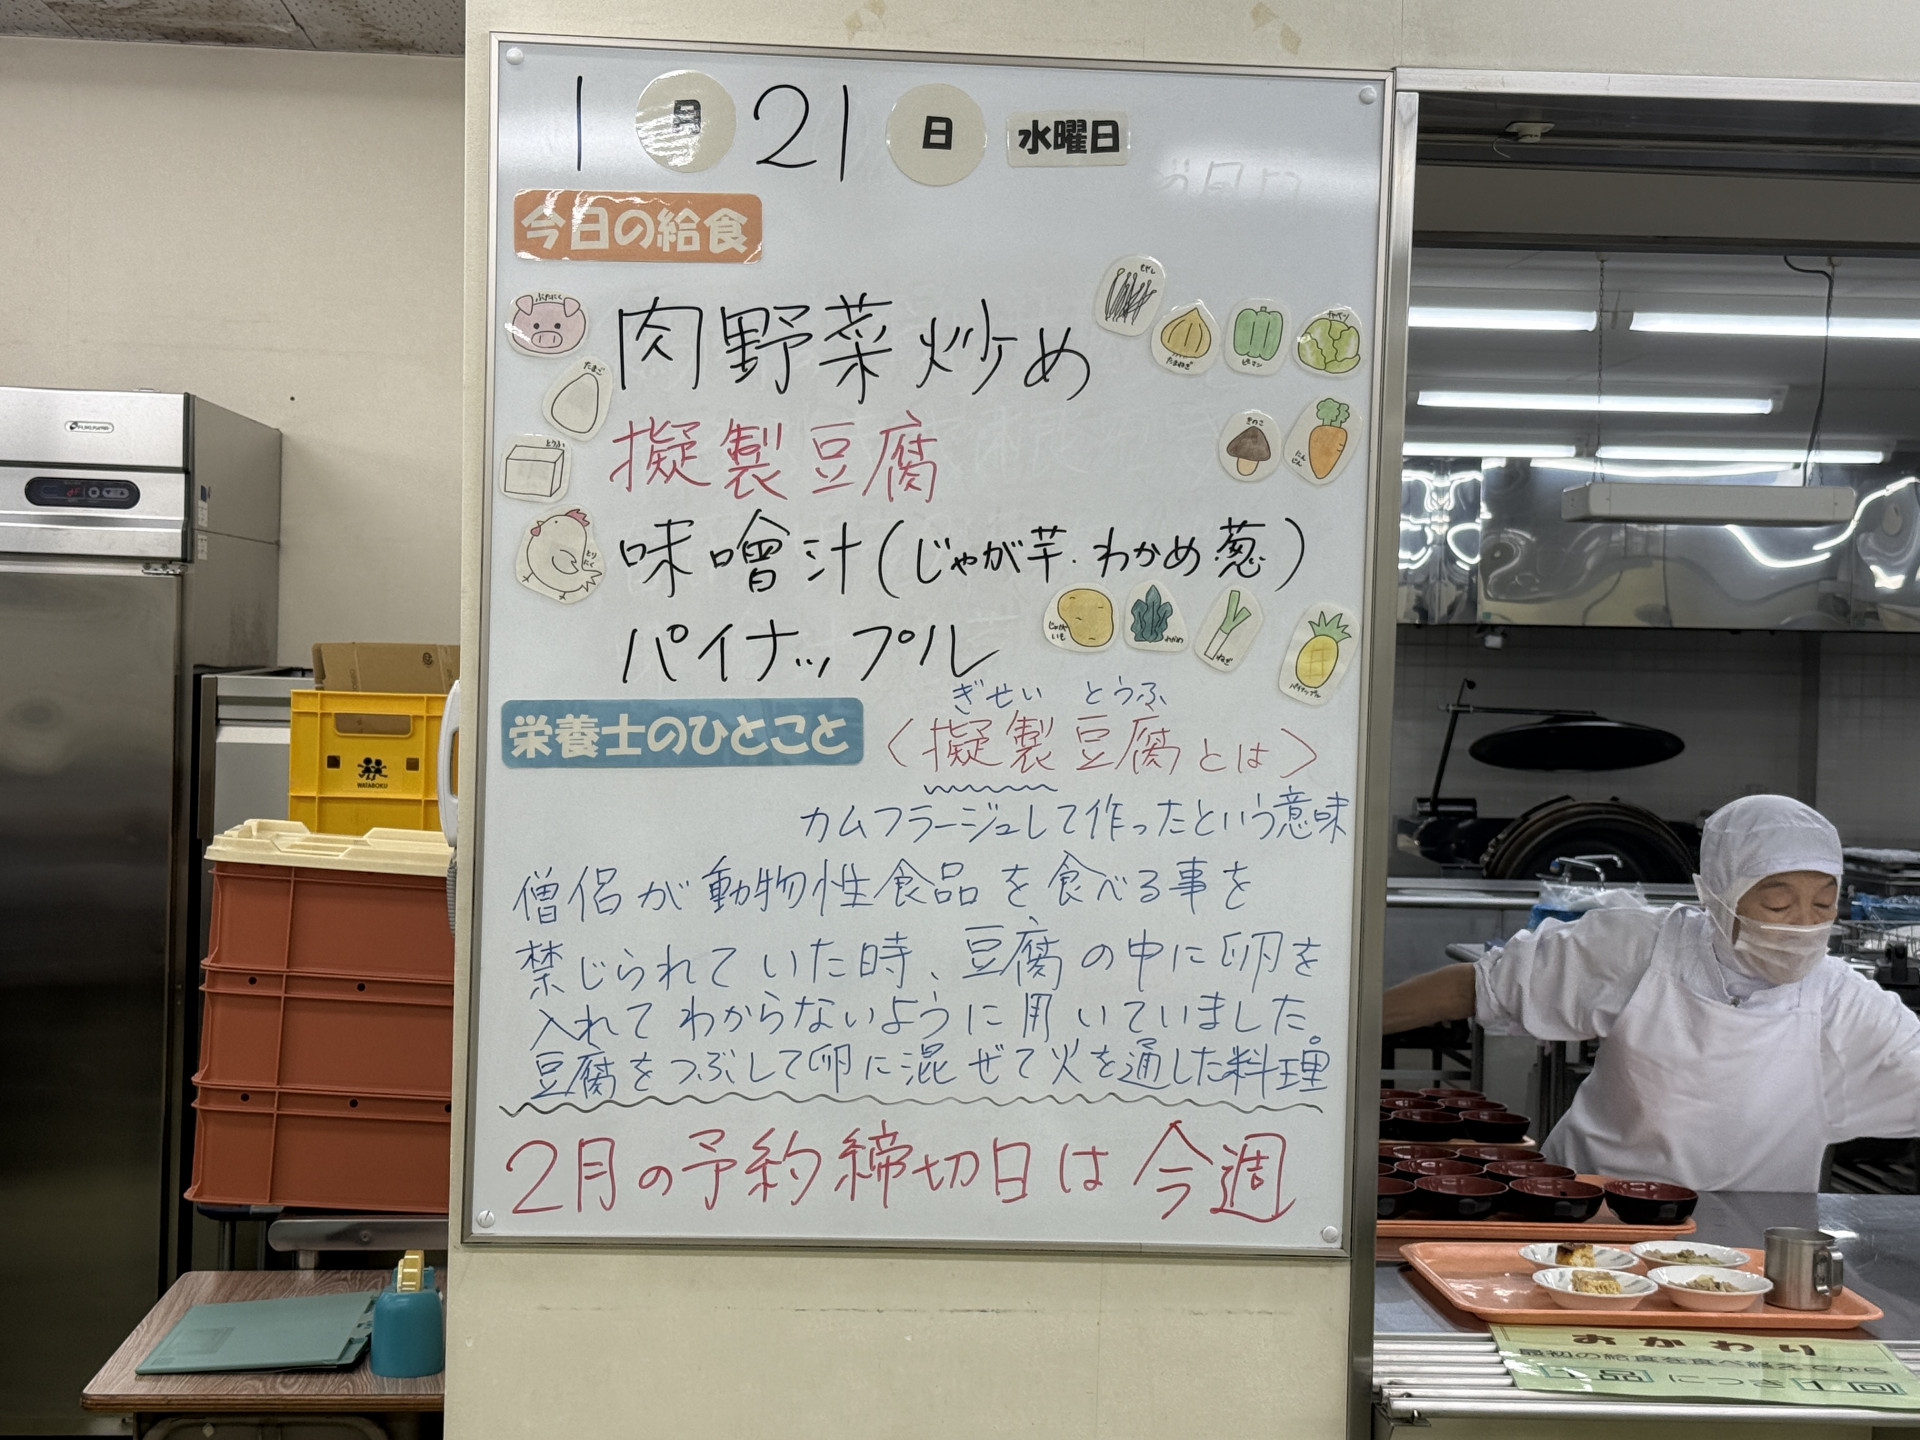 1月21日 水曜日
今日の給食
ぶたにく
肉野菜炒め
もやし
たまねぎ
ピーマン
キャベツ
たまご
とうふ
擬製豆腐
きのこ
にんじん
とりにく
味噌汁(じゃが芋・わかめ葱)
パイナップル
じゃがいも
わかめ
ねぎ
パイナップル
栄養士のひとこと
ぎせい とうふ
〈擬製豆腐とは〉
カムフラージュして作ったという意味
僧侶が動物性食品を食べる事を
禁じられていた時、豆腐の中に卵を
入れてわからないように用いていました。
豆腐をつぶして卵に混ぜて火を通した料理
2月の予約締切日は今週
WATAROKU
おかわり
最初の給食を食べ終えてから
1品につき1回